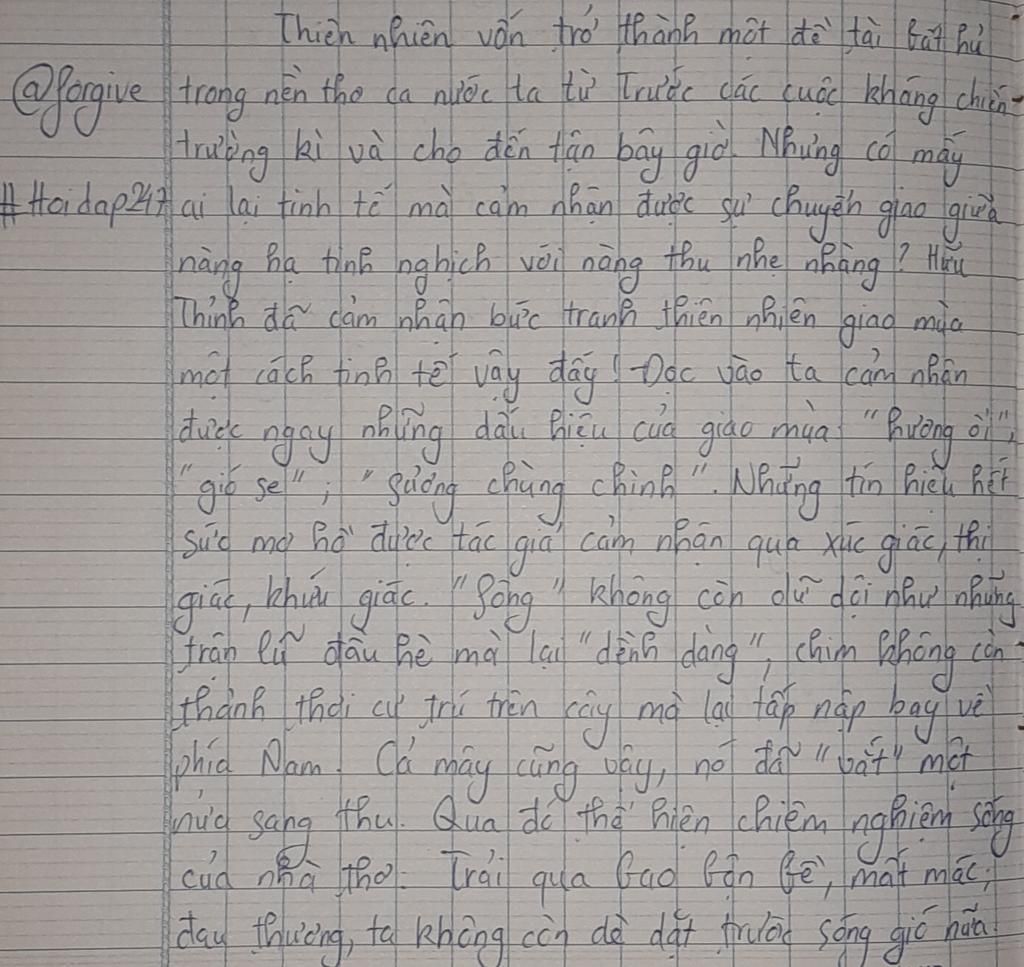 Thiên nhiên vốn trở thành một đề tài bất hủ
@forgive trong nền thơ ca nước ta từ Trước các cuộc kháng chiến
trường kì và cho đến tận bây giờ. Nhưng có mấy
#Hoidap247 ai lại tinh tế mà cảm nhận được sự chuyển giao giữa
nàng hạ tinh nghịch với nàng thu nhẹ nhàng? Hữu
Thỉnh đã cảm nhận bức tranh thiên nhiên giao mùa
một cách tinh tế vậy đấy! Đọc vào ta cảm nhận
được ngay những dấu hiệu của giao mùa "hương ổi",
"gió se"; "sương chùng chình". Những tín hiệu hết
sức mơ hồ được tác giả cảm nhận qua xúc giác, thị
giác, khứu giác. "Sông" không còn dữ dội như những
trận lũ đầu hè mà lại "dềnh dàng", chim không còn
thảnh thơi cư trú trên cây mà lại tấp nập bay về
phía Nam. Cả mây cũng vậy, nó đã "vắt" một
nửa sang thu. Qua đó thể hiện chiêm nghiệm sống
của nhà thơ. Trải qua bao bộn bề, mất mác,
đau thương, ta không còn dè dặt trước sóng gió nữa.